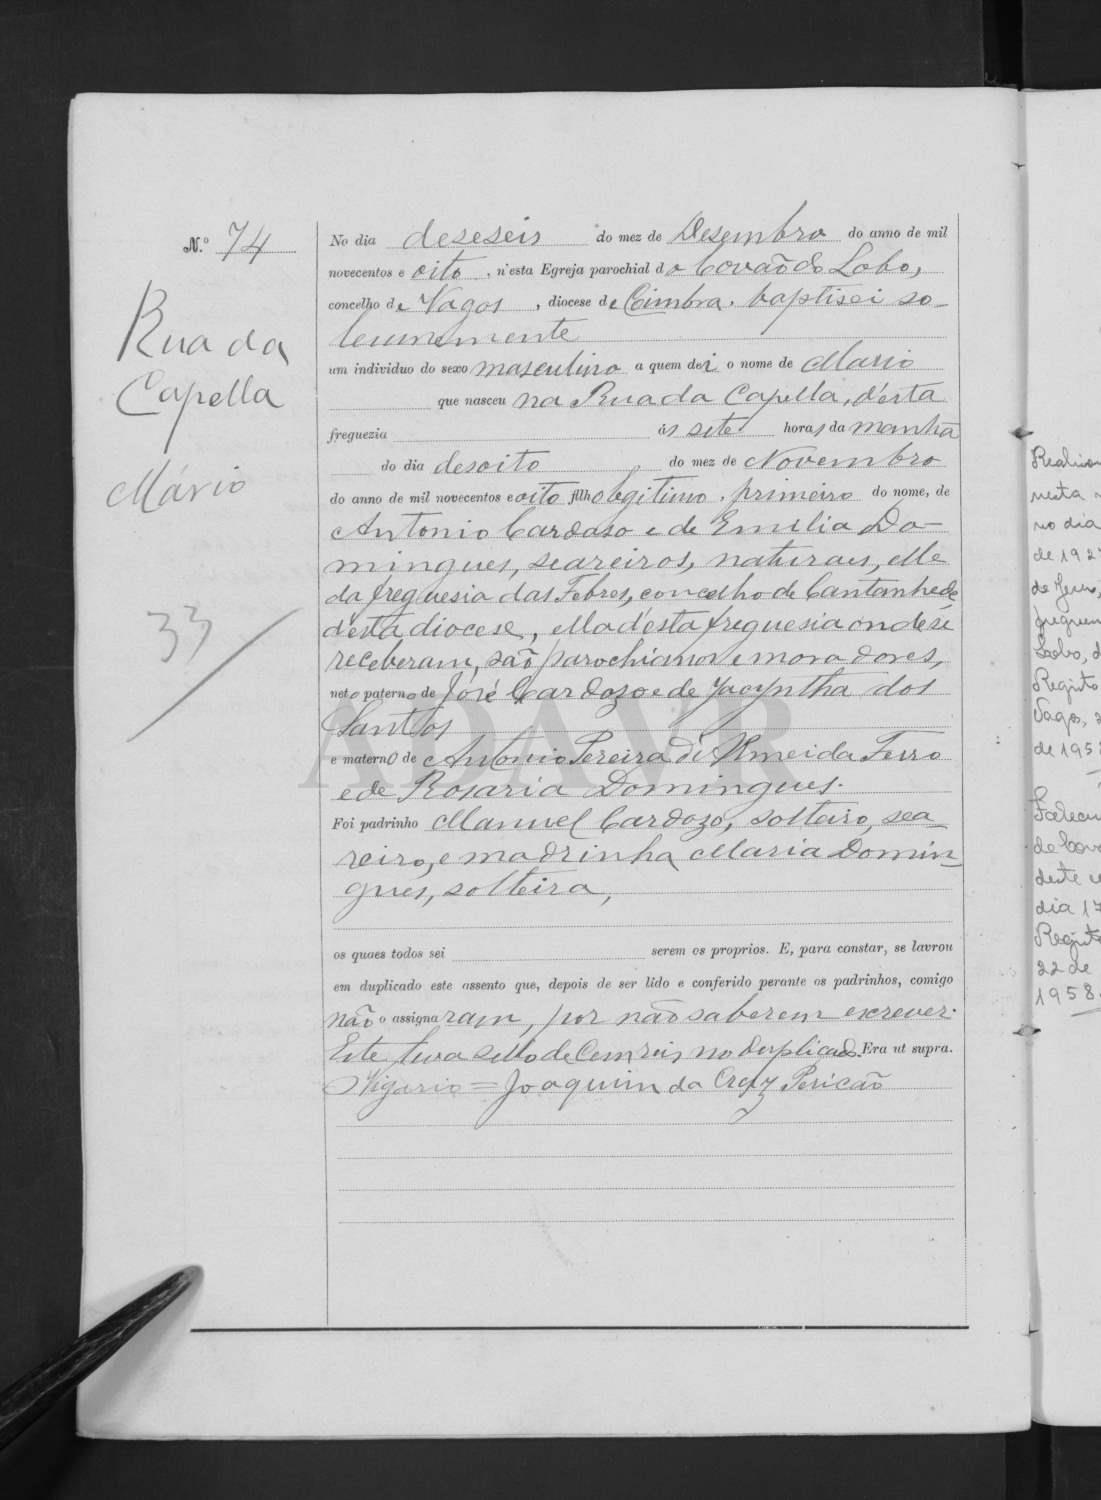 N.º 74
Rua da
Capella
Mário
33
No dia deseseis do mez de Desembro do anno de mil
novecentos e oito, n'esta Egreja parochial do Covão do Lobo,
concelho de Vagos, diocese de Coimbra. baptisei so-
lemnemente
um individuo do sexo masculino a quem dei o nome de Mario
que nasceu na Rua da Capella, d'esta
freguezia ás sete horas da manhã
do dia desoito do mez de Novembro
do anno de mil novecentos e oito filho legitimo, primeiro do nome, de
Antonio Cardoso e de Emilia Do-
mingues, seareiros, naturaes, elle
da freguesia das Febres, concelho de Cantanhede
d'esta diocese, ella d'esta freguesia onde se
receberam, são parochianos e moradores,
neto paterno de José Cardozo e de Jacyntha dos
Santos
e materno de Antonio Pereira d'Almeida Ferro
e de Rosaria Domingues.
Foi padrinho Manuel Cardozo, solteiro, sea-
reiro, e madrinha Maria Domin-
gues, solteira,
os quaes todos sei serem os proprios. E, para constar, se lavrou
em duplicado este assento que, depois de ser lido e conferido perante os padrinhos, comigo
não o assignaram, por não saberem escrever.
Este leva sello de Cem reis no duplicado. Era ut supra.
O Vigario = Joaquim da Cruz Pericão
ADAVR
nesta
no dia
de 192
Lobo, d
Registo
Vagos, 2
de 1958
deste
dia 17
Registo
22 de
1958.